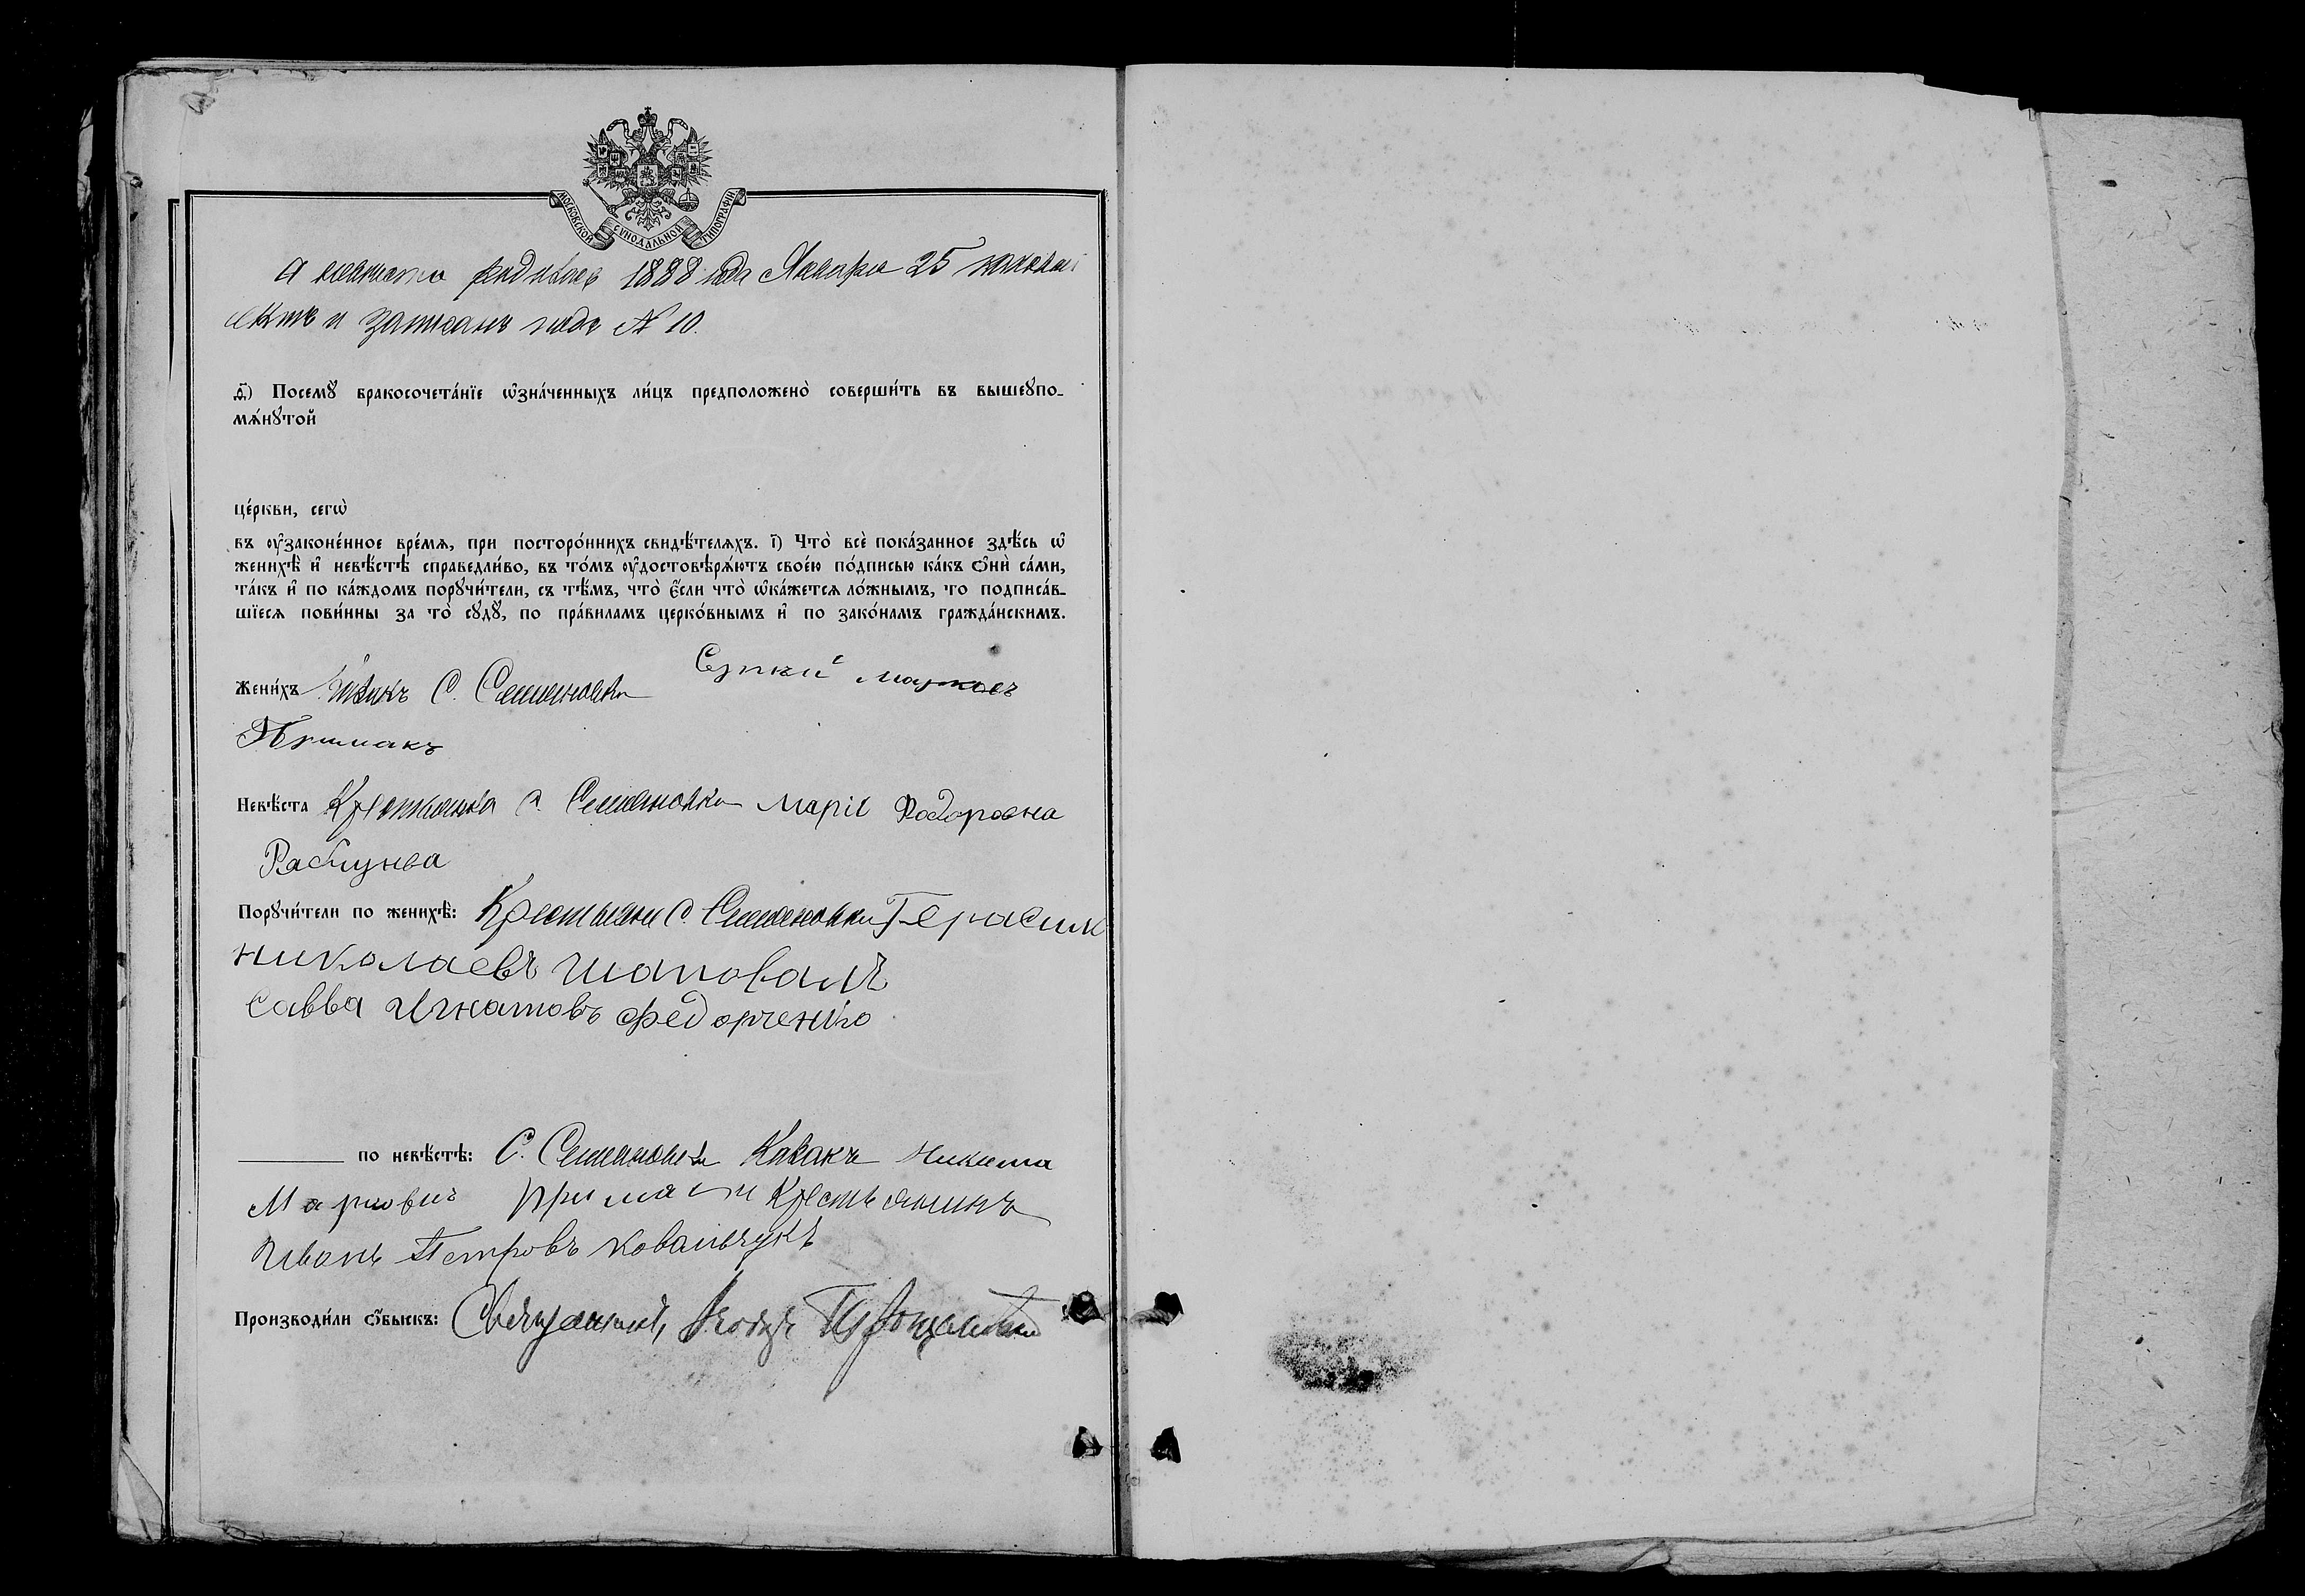 МОСКОВСКОЙ СѴНОДАЛЬНОЙ ТИПОГРАФІИ
А невеста родилась 1888 года Января 25
актъ и записанъ подъ № 10.
д҃) Посемꙋ̀ бракосочета́нїе ѡ҆зна́ченныхъ ли́цъ предположено̀ соверши́ть въ вышеꙋпо-
мѧ́нꙋтой
це́ркви, сегѡ̀
въ оу҆законе́нное вре́мѧ, при посторо́ннихъ свидѣ́телѧхъ. і҃) Что̀ всѐ пока́занное здѣ́сь ѡ҆
женихѣ̀ и҆ невѣ́стѣ справедли́во, въ то́мъ оу҆достовѣрѧ́ютъ свое́ю по́дписью ка́къ ѻ҆нѝ са́ми,
та́къ и҆ по ка́ждомъ порꙋчи́тели, съ тѣ́мъ, что̀ є҆́сли что̀ ѡ҆ка́жется ло́жнымъ, то подписа́в-
шїеся пови́нны за то̀ сꙋдꙋ̀, по пра́виламъ церко́внымъ и҆ по зако́намъ гражда́нскимъ.
Жени́хъ С. Семеновки
Невѣ́ста Крестьянка с. Семеновки Маріе Фодоровна
Порꙋчи́тели по женихѣ̀: Крестьяни с. Семеновки Герасим
николаевъ шаповалъ
Савва Игнатовъ Федорченко
по невѣ́стѣ: С. Семеновки Казакъ Никита
Маркович Крестьянинъ
Иванъ Петровъ Ковальчукъ
Производи́ли ѻ҆́быскъ: Священникъ,